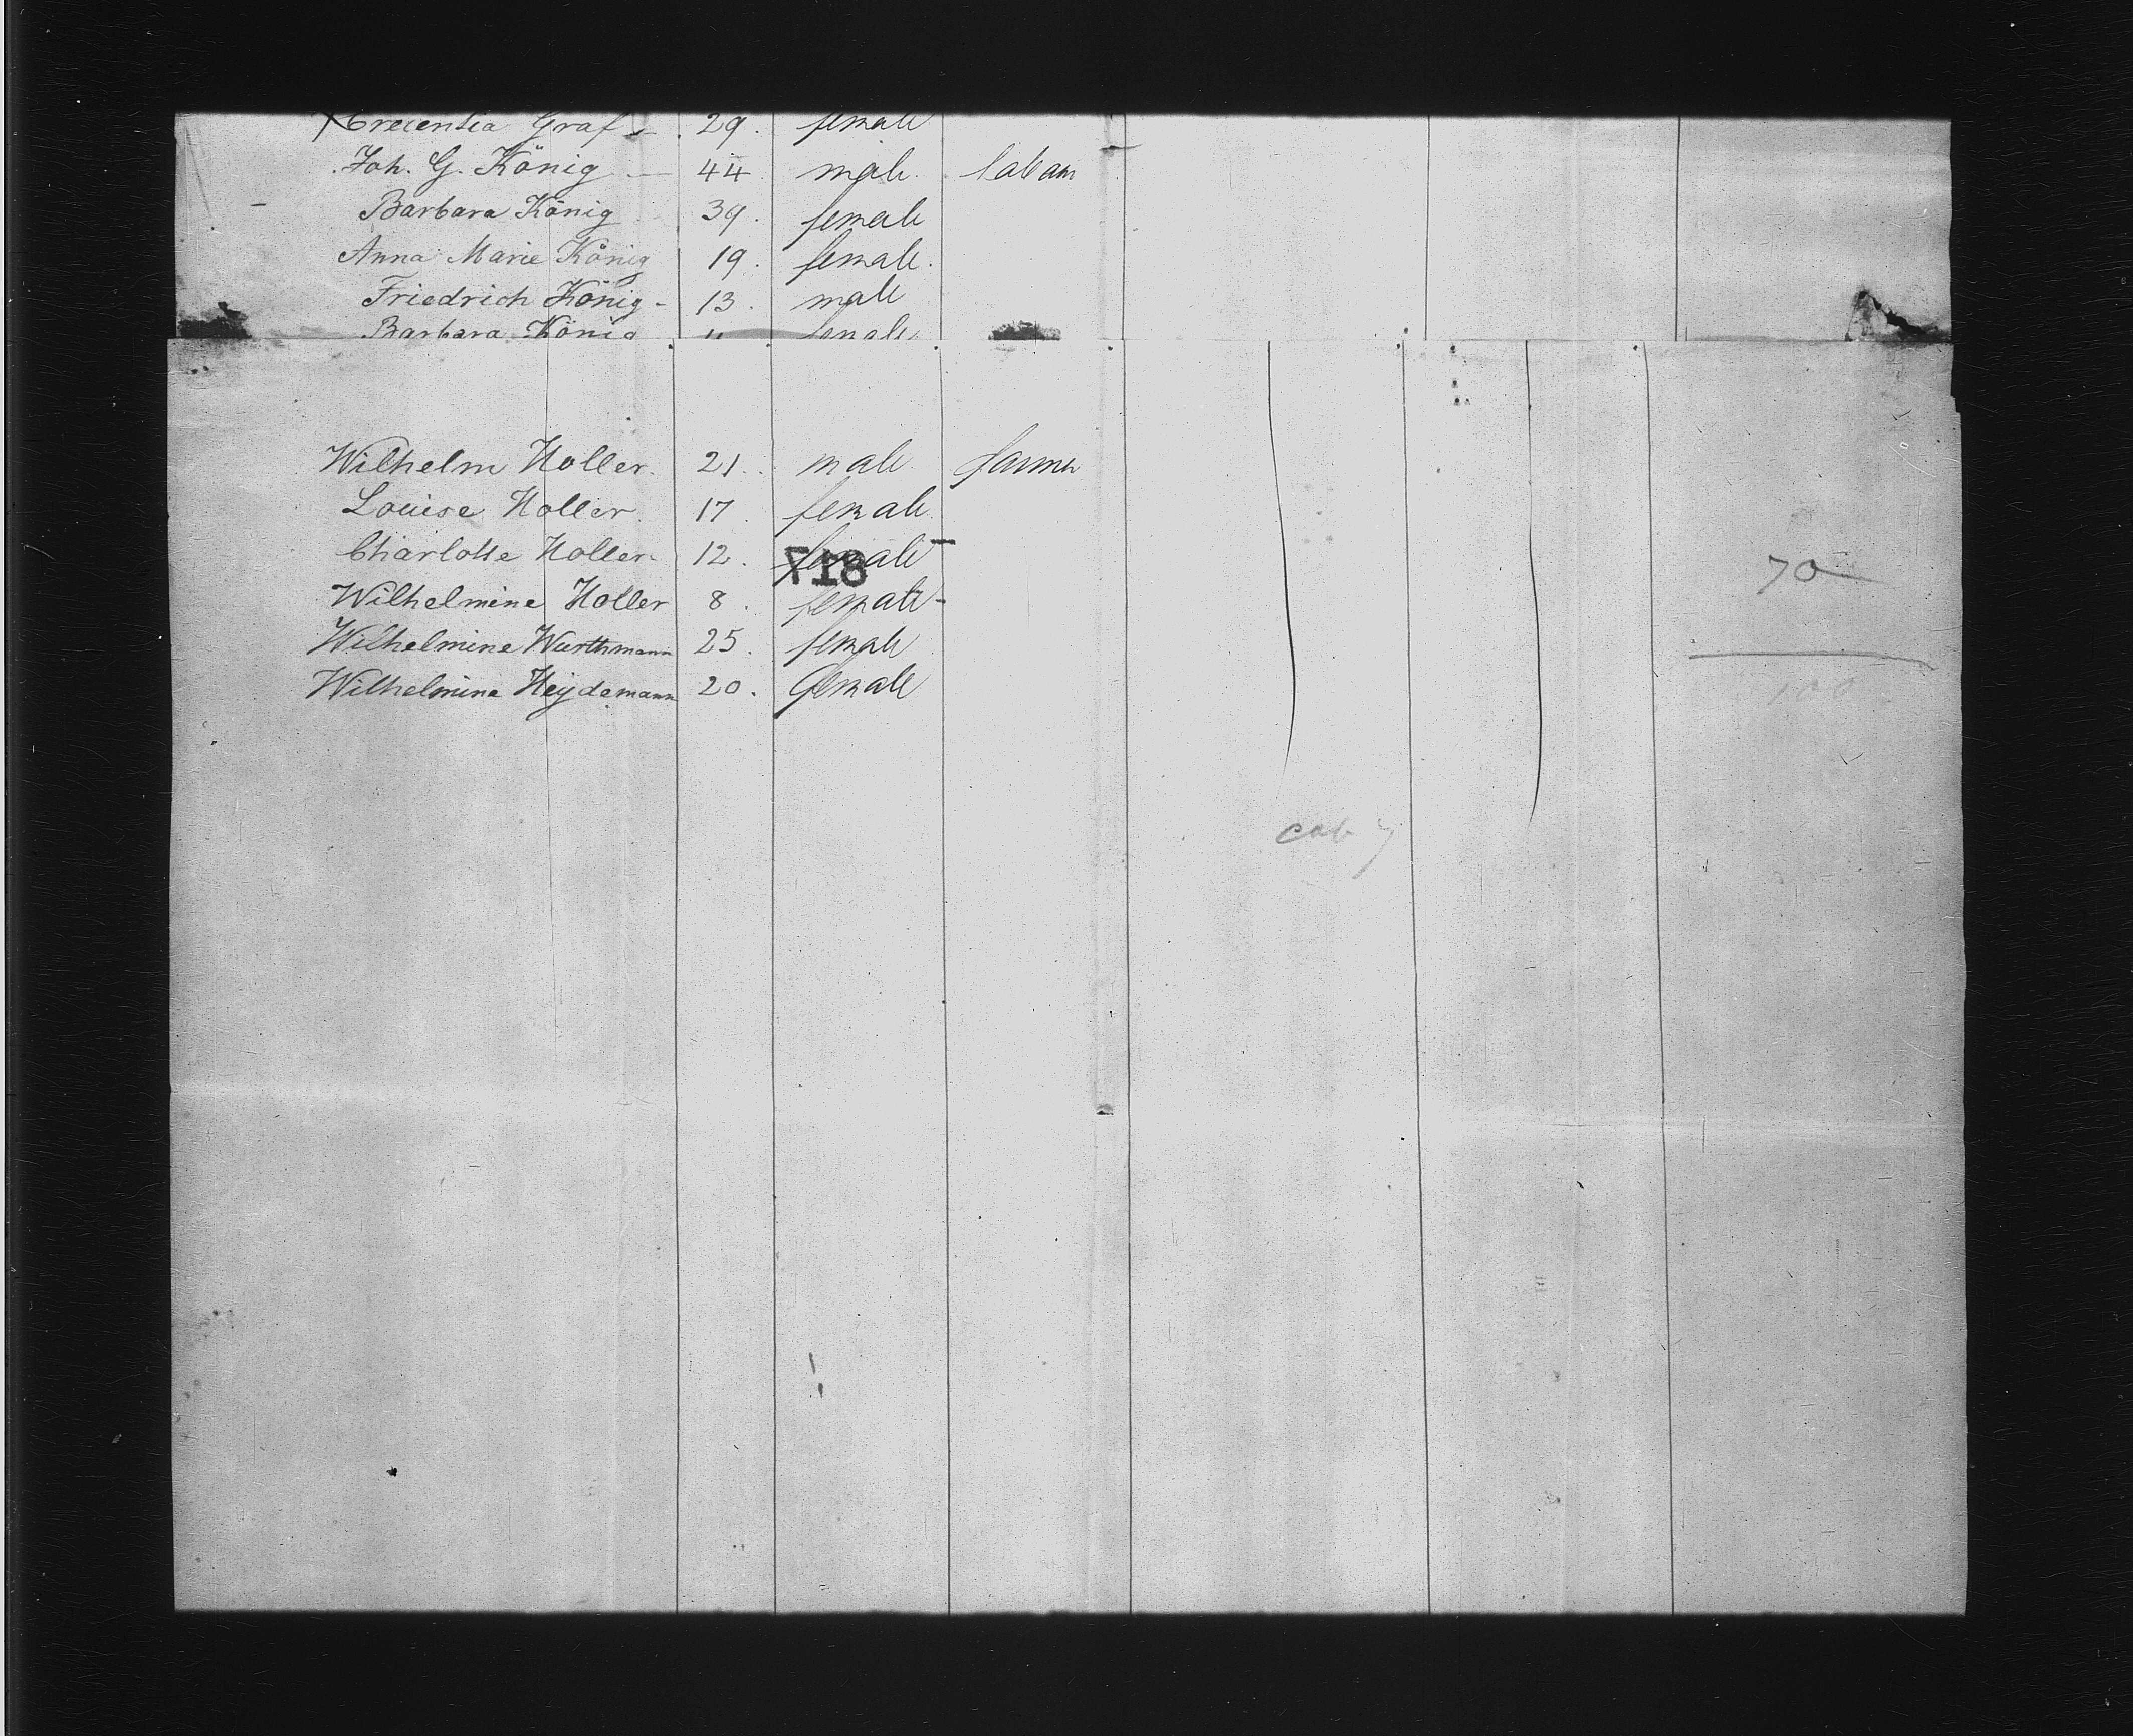 Crecentia Graf 29. female
Joh. G. König 44 male. labour
Barbara König 39. female
Anna Marie König 19. female.
Friedrich König 13. male
Barbara König 11 female
Wilhelm Holler. 21. male farmer
Louise Holler. 17. female
Charlotte Holler 12. female
718
Wilhelmine Holler 8. female
Wilhelmine Warthmann 25. female
Wilhelmine Heydemann 20. female
70
100